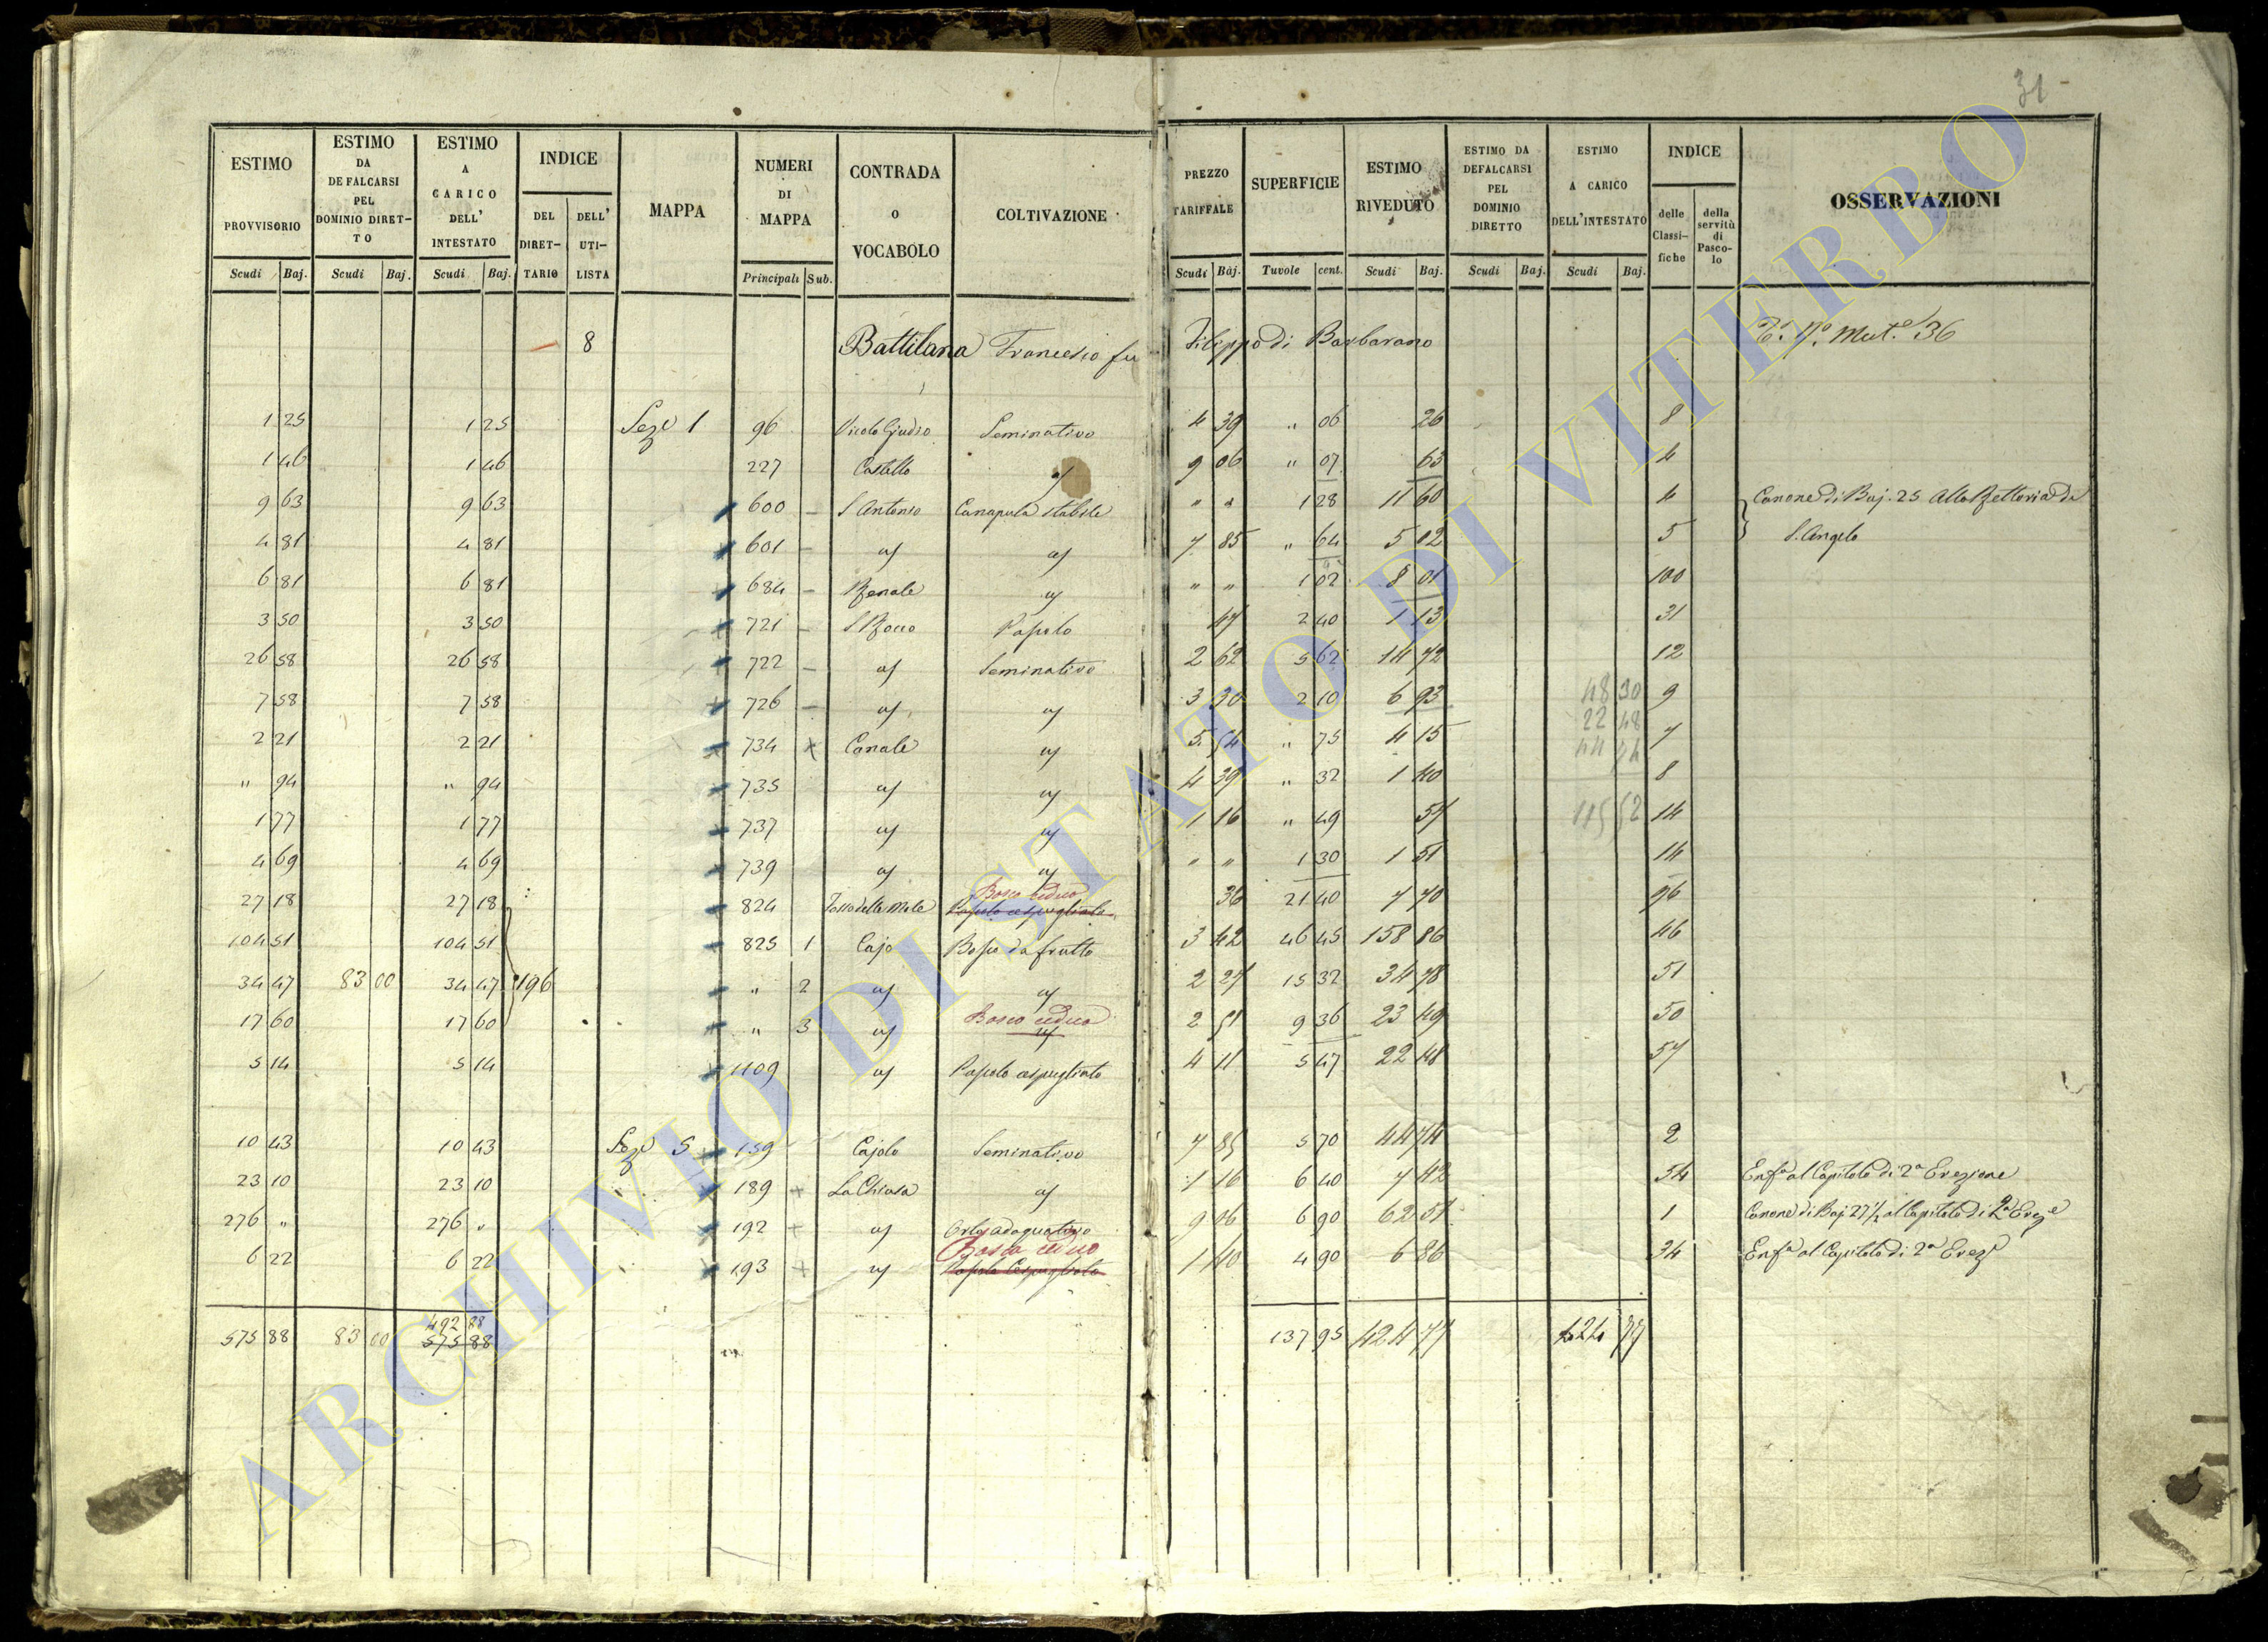 31
ESTIMO PROVVISORIO Scudi Baj.
ESTIMO DA DEFALCARSI PEL DOMINIO DIRETTO Scudi Baj.
ESTIMO A CARICO DELL' INTESTATO Scudi Baj.
INDICE DEL DIRET-TARIO DELL' UTI-LISTA
MAPPA
NUMERI DI MAPPA Principali Sub.
CONTRADA O VOCABOLO
COLTIVAZIONE
PREZZO TARIFFALE Scudi Baj.
SUPERFICIE Tavole cent.
ESTIMO RIVEDUTO Scudi Baj.
ESTIMO DA DEFALCARSI PEL DOMINIO DIRETTO Scudi Baj.
ESTIMO A CARICO DELL'INTESTATO Scudi Baj.
INDICE delle Classi-fiche della servitù di Pasco-lo
OSSERVAZIONI
8 Battilana Francesco fu Filippo di Barbarano Mut.e 36
1 25 1 25 Sez.e 1 96 Vicolo Giudio Seminativo 4 39 " 06 26 8
1 46 1 46 227 Castello 9 06 " 07 63 4
9 63 9 63 600 S Antonio Canapula stabile " " 1 28 11 60 4 Canone di Baj. 25 Alla Rettoria di
4 81 4 81 601 7 85 " 64 5 02 5 S. Angelo
6 81 6 81 684 " " 1 02 8 01 100
3 50 3 50 721 S Rocco Pascolo 47 2 40 1 13 31
26 58 26 58 722 Seminativo 2 62 5 62 14 72 12
7 58 7 58 726 3 30 2 10 6 93 48 30 9
2 21 2 21 734 Canale 5 54 " 75 4 15 22 48 44 74 7
" 94 " 94 735 4 39 " 32 1 40 8
1 77 1 77 737 1 16 " 49 57 115 52 14
4 69 4 69 739 " " 1 30 1 51 14
27 18 27 18 824 Fosso delle Mole Bosco ceduo Pascolo cespugliato 36 21 40 7 70 96
104 51 104 51 825 1 Cajo Bosco da frutto 3 42 46 45 158 86 46
34 47 83 00 34 47 196 " 2 2 27 15 32 34 78 51
17 60 17 60 " 3 Bosco ceduo 2 51 9 36 23 49 50
5 14 5 14 1109 Pascolo cespugliato 4 11 5 47 22 48 57
10 43 10 43 Sez.e 5 159 Cajolo Seminativo 7 85 5 70 44 74 2
23 10 23 10 189 La Chiusa 1 16 6 40 7 42 54 Enf.a al Capitolo di 2a Erezione
276 " 276 " 192 Orto adaquativo 9 06 6 90 62 51 1 Canone di Baj 27 1/2 al Capitolo di 2a Erez.e
6 22 6 22 193 Bosco ceduo Pascolo Cespugliato 1 40 4 90 6 86 34 Enf.a al Capitolo di 2a Erez.e
575 88 83 00 492 88 575 88 137 95 424 77 424 77
ARCHIVIO DI STATO DI VITERBO